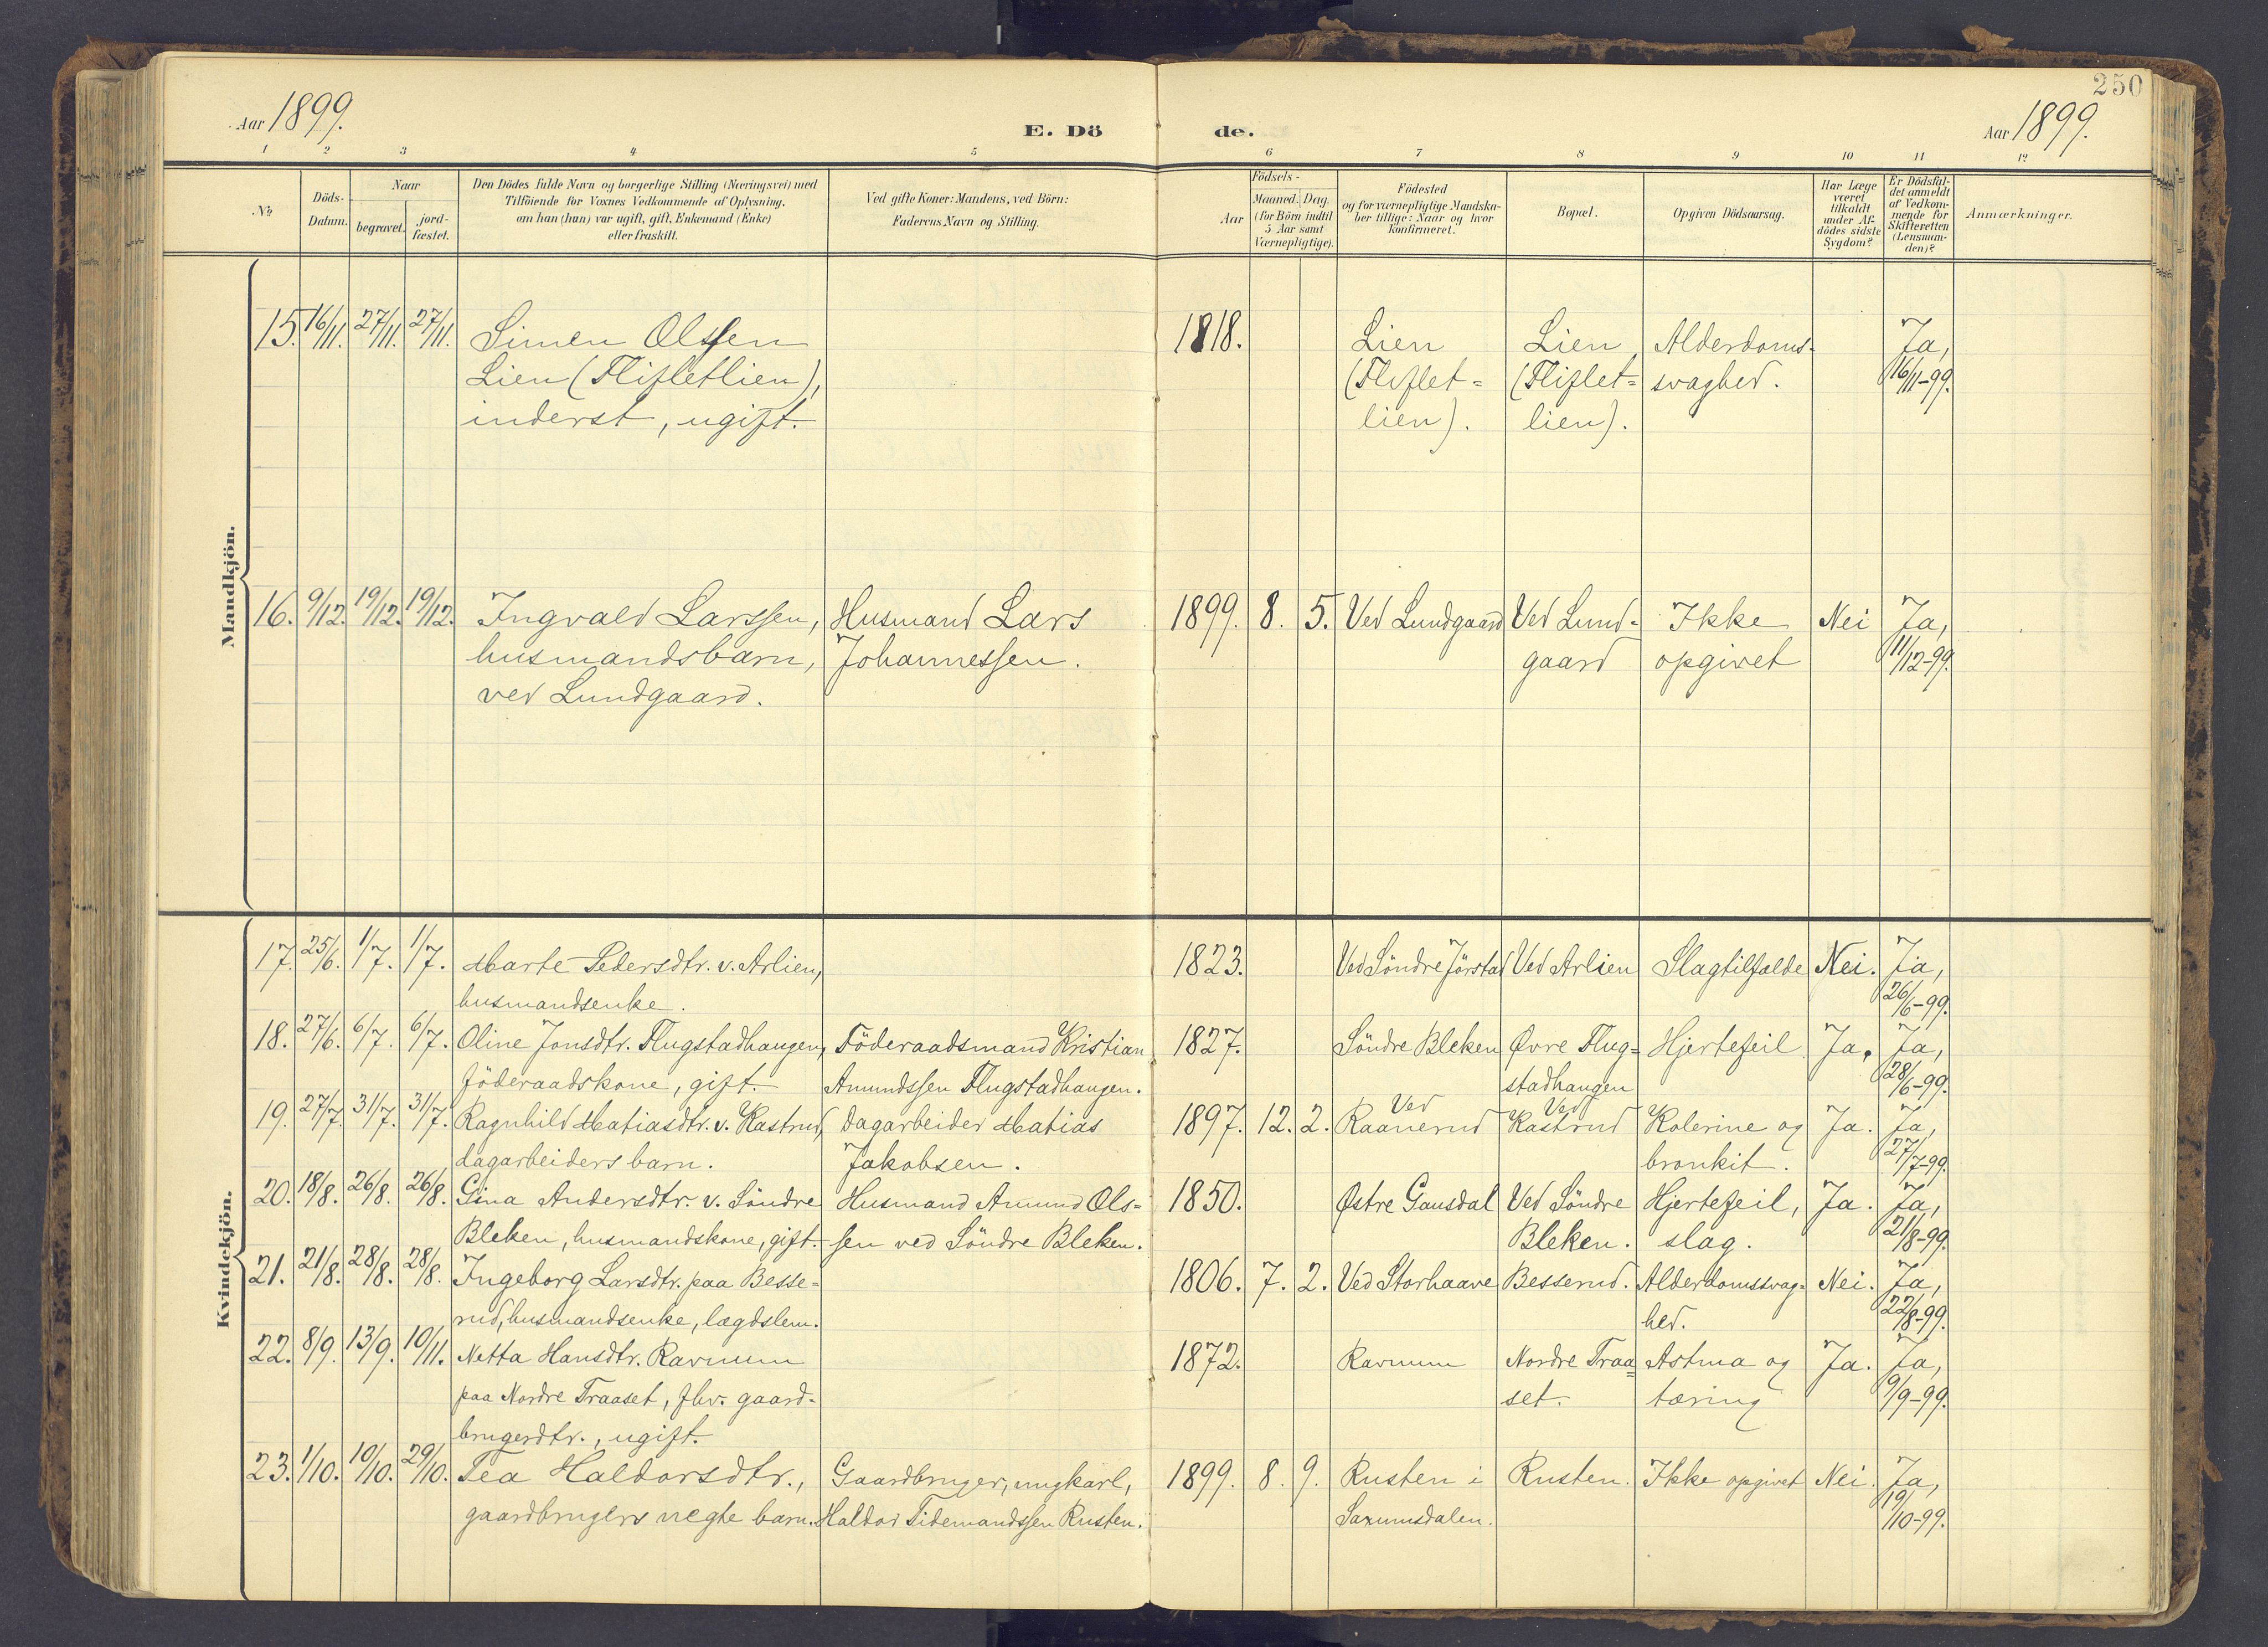 250
Aar 1899.
E. Dö de.
Aar 1899.
1 2 3 4 5 6 7 8 9 10 11 12
No
Döds-
Datum.
Naar
begravet.
jord-
fæstet.
Den Dödes fulde Navn og borgerlige Stilling (Næringsvei) med
Tilföiende for Voxnes Vedkommende af Oplysning,
om han (hun) var ugift, gift, Enkemand (Enke)
eller fraskilt.
Ved gifte Koner: Mandens, ved Börn:
Faderens Navn og Stilling.
Födsels-
Aar
Maaned. Dag.
(for Börn indtil
5 Aar samt
Værnepligtige).
Födested
og for værnepligtige Mandska-
ber tillige: Naar og hvor
konfirmeret.
Bopæl.
Opgiven Dödsaarsag.
Har Læge
været
tilkaldt
under Af-
dödes sidste
Sygdom?
Er Dödsfal-
det anmeldt
af Vedkom-
mende for
Skifteretten
(Lensman-
den)?
Anmærkninger.
Mandkjön.
15. 16/11. 27/11. 27/11. Simen Olssen 1818. Lien Lien Alderdoms- Ja,
Lien (Flifletlien), (Fliflet= (Fliflet= svaghed. 16/11-99.
inderst, ugift. lien). lien).
16. 9/12. 19/12. 19/12. Ingvald Larssen, Husmand Lars 1899. 8. 5. Ved Lundgaard Ved Lund- Ikke Nei Ja,
husmandsbarn, Johannessen. gaard opgivet 11/12-99.
ved Lundgaard.
Kvindekjön.
17. 25/6. 1/7. 1/7. Marte Pedersdtr. v. Arlien, 1823. Ved Söndre Jörstad Ved Arlien Slagtilfælde Nei. Ja,
husmandsenke. 26/6-99.
18. 27/6. 6/7. 6/7. Oline Jonsdtr. Flugstadhaugen, Föderaadsmand Kristian 1827. Söndre Bleken Øvre Flug= Hjertefeil Ja. Ja,
föderaadskone, gift. Amundssen Flugstadhaugen. stadhaugen 28/6-99.
19. 27/7. 31/7. 31/7. Ragnhild Matiasdtr. v. Kastrud, Dagarbeider Matias 1897. 12. 2. Ved Raanerud Ved Kastrud Kolerine og Ja. Ja,
dagarbeiders barn. Jakobsen. bronkit. 27/7-99.
20. 18/8. 26/8. 26/8. Gina Andersdtr. v. Söndre Husmand Amund Ols= 1850. Østre Gausdal Ved Söndre Hjertefeil, Ja. Ja,
Bleken, husmandskone, gift. sen ved Söndre Bleken. Bleken. slag. 21/8-99.
21. 21/8. 28/8. 28/8. Ingeborg Larsdtr. paa Besse= 1806. 7. 2. Ved Storhaave Besserud. Alderdomssvag= Nei. Ja,
rud, husmandsenke, lægdslem. hed. 22/8-99.
22. 8/9. 13/9. 10/11. Netta Hansdtr. Ravnum 1872. Ravnum Nordre Traa= Astma og Ja. Ja,
paa Nordre Traaset, fhv. gaard- set. tæring 9/9-99.
brugerdtr., ugift.
23. 1/10. 10/10. 29/10. Tea Haldorsdtr., Gaardbruger, ungkarl, 1899. 8. 9. Rusten i Rusten. Ikke opgivet Nei. Ja,
gaardbrugers uegte barn. Haldor Tidemandssen Rusten. Saxumsdalen. 10-99.